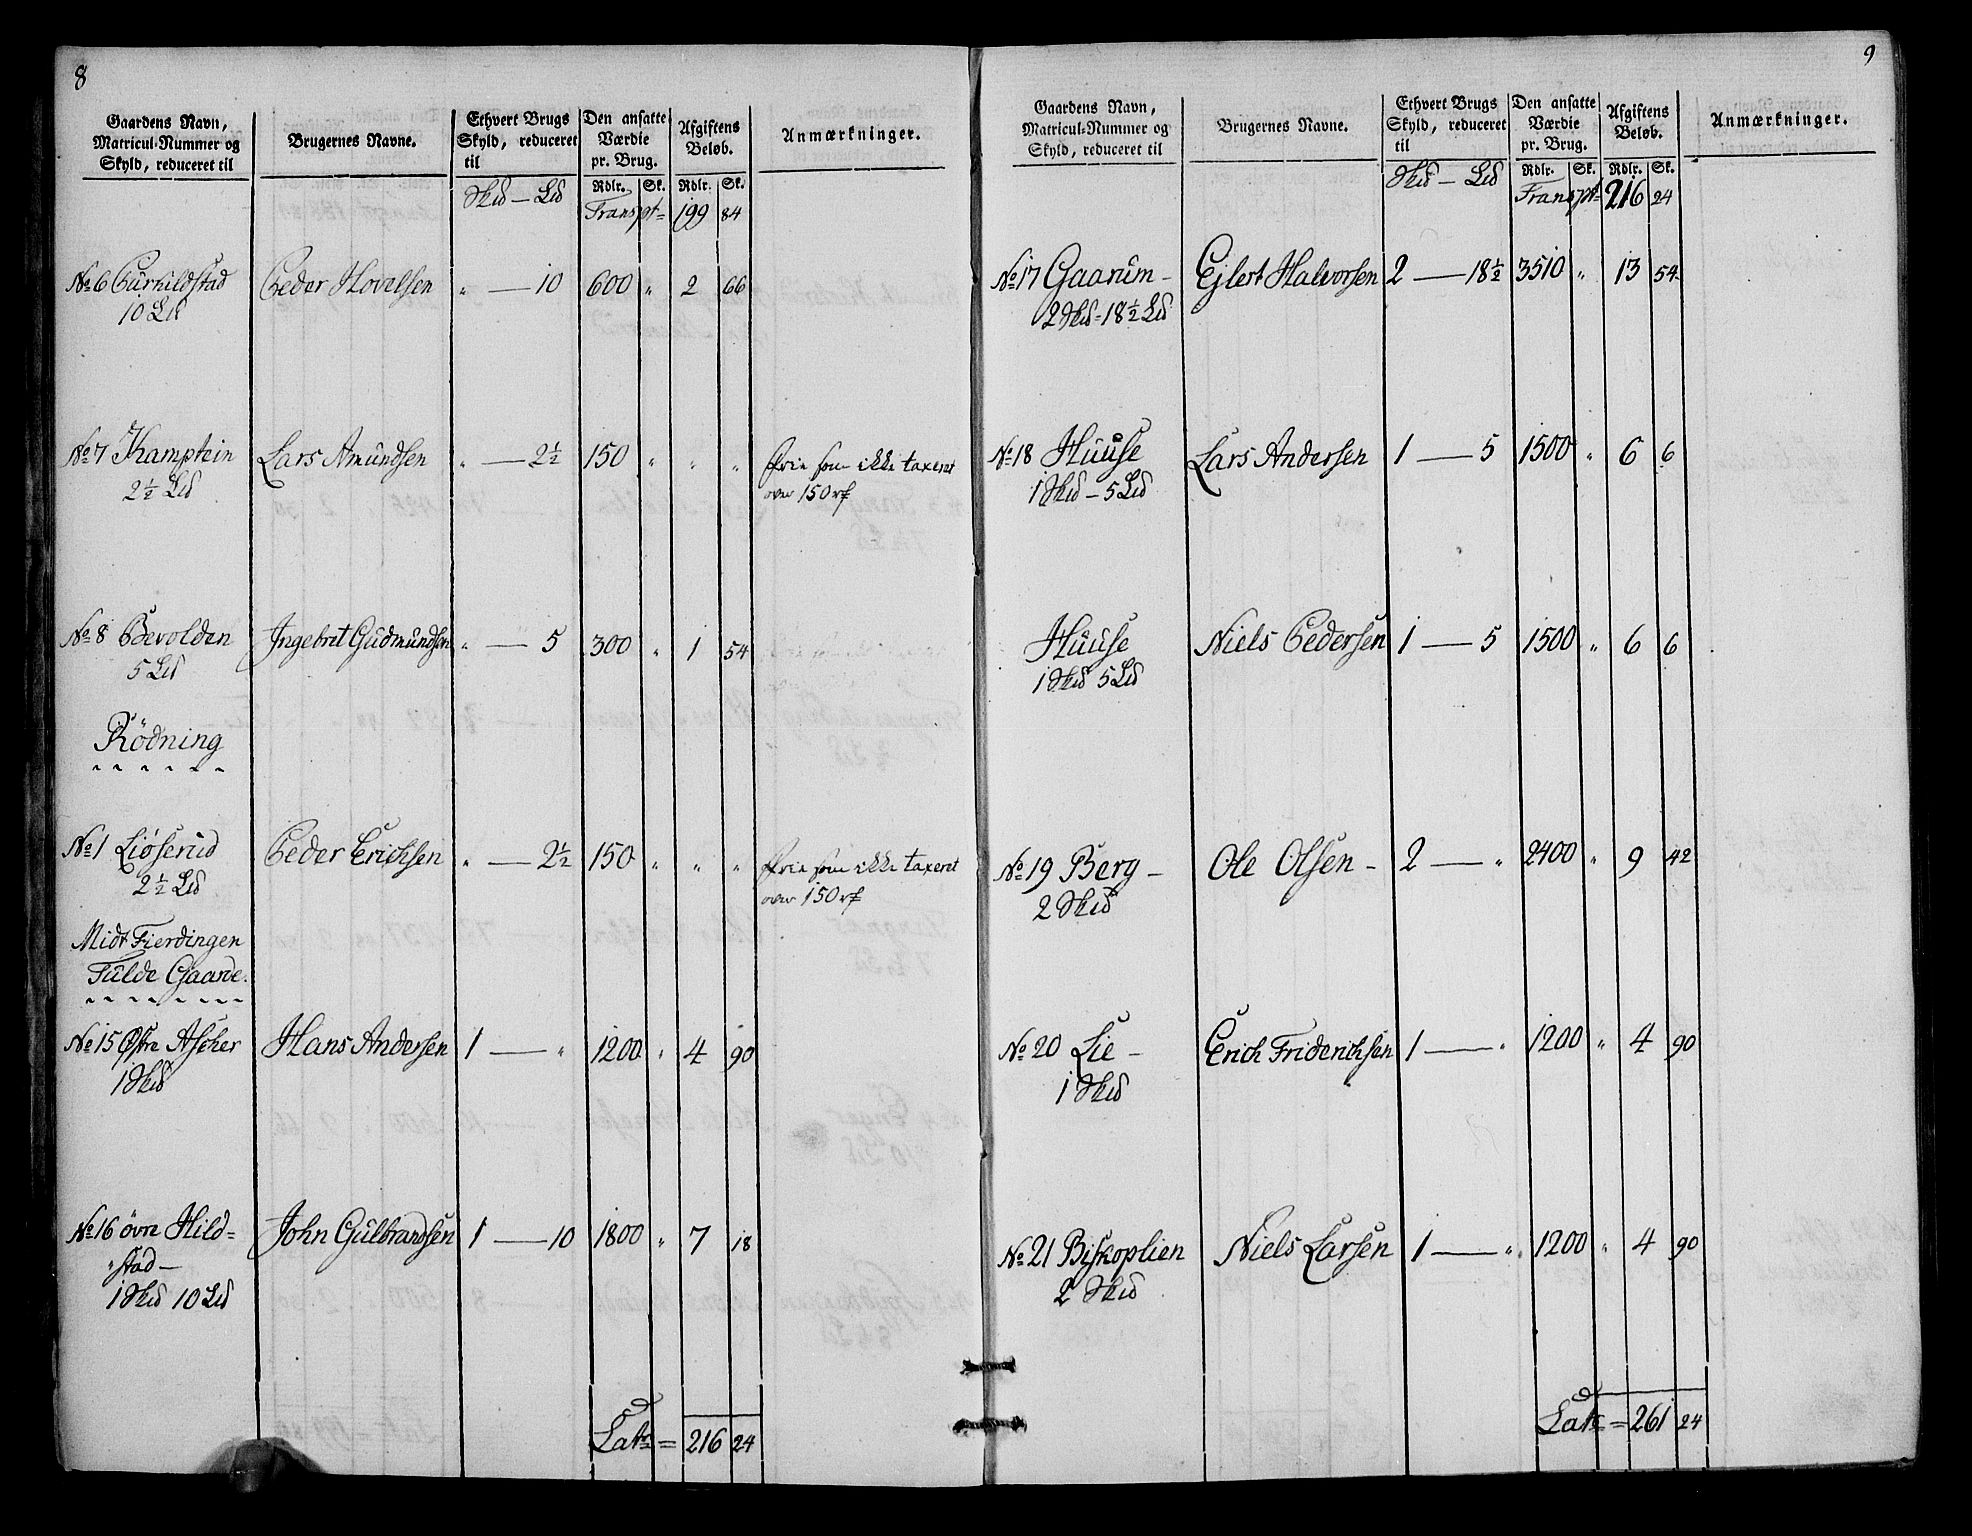 8
Gaardens Navn, Matricul-Nummer og Skyld, reduceret til
Brugernes Navne.
Ethvert Brugs Skyld, reduceret til
Den ansatte Værdie pr. Brug.
Afgiftens Beløb.
Anmærkninger.
Rdlr. Sk. Rdlr. Sk.
Skd — Ld Transpt= 199 84
No 6 Gurhildstad Peder Hovelsen „ — 10 600 „ 2 66
10 Ld
No 7 Kamptein Lars Amundsen „ — 2½ 150 „ „ „ frie som ikke taxeret
2½ Ld over 150 rf
No 8 Bevolden Ingebret Gudmundsen „ — 5 300 „ 1 54
5 Ld
Rödning
No 1 Liøserud Peder Erichsen „ — 2½ 150 „ „ „ frie som ikke taxeret
2½ Ld over 150 rf
Midt Fierdingen
Fulde Gaarde.
No 15 Østre Ascher Hans Andersen 1 — „ 1200 „ 4 90
1 Skd
No 16 övre Hild= John Gulbrandsen 1 — 10 1800 „ 7 18
„stad —
1 Skd 10 Ld
Latr = 216 24
9
Gaardens Navn, Matricul-Nummer og Skyld, reduceret til
Brugernes Navne.
Ethvert Brugs Skyld, reduceret til
Den ansatte Værdie pr. Brug.
Afgiftens Beløb.
Anmærkninger.
Rdlr. Sk. Rdlr. Sk.
Skd — Ld Transpt= 216 24
No 17 Gaarum — Ejlert Halvorsen 2 — 18½ 3510 „ 13 54
2 Skd - 18½ Ld
No 18 Huuse Lars Andersen 1 — 5 1500 „ 6 6
1 Skd — 5 Ld
Huuse Niels Pedersen 1 — 5 1500 „ 6 6
1 Skd 5 Ld
No 19 Berg — Ole Olsen — 2 — „ 2400 „ 9 42
2 Skd
No 20 Lie — Erich Friderichsen 1 — „ 1200 „ 4 90
1 Skd
No 21 Biskoplien Niels Larsen 1 — „ 1200 „ 4 90
2 Skd
Latr = 261 24